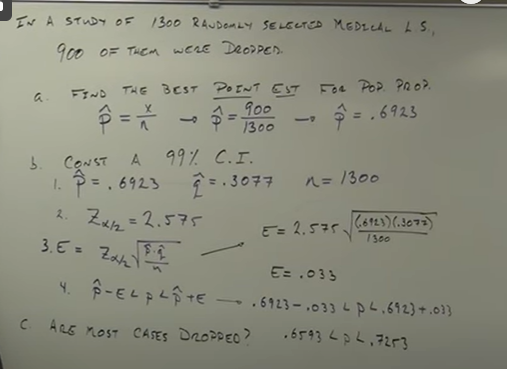 IN A STUDY OF 1300 RANDOMLY SELECTED MEDICAL L.S,
900 OF THEM WERE DROPPED.
a. FIND THE BEST POINT EST FOR POP. PROP.
p̂ = x/n → p̂ = 900/1300 → p̂ = .6923
b. CONST A 99% C.I.
1. p̂ = .6923 q̂ = .3077 n = 1300
2. Zα/2 = 2.575
3. E = Zα/2 √(p̂·q̂/n) → E = 2.575 √((.6923)(.3077)/1300)
E = .033
4. p̂-E < p < p̂+E → .6923-.033 < p < .6923+.033
.6593 < p < .7253
C. ARE MOST CASES DROPPED?